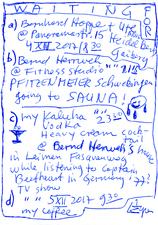 WAITING FOR
a) Bernhard Hoppe + Ute
@ Panoramastr. 15 Heidelberg
4 XII 2017 / 3 30
b) Bernd Herzweh
@ Fitness studio
PFITZENMEIER Schwetzingen
going to SAUNA!
c) my Kahlua " 23 30
Vodka
Heavy cream cocktail
@ Bernd Herzweh's house
in Leimen Fasanenweg
while listening to Captain
Beefheart in Germany '77!
TV show
d) " " 5 XII 2017 9 30
my coffee